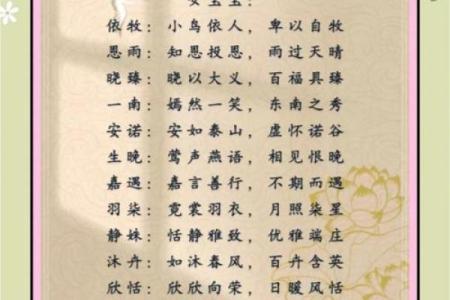 女宝宝：
依牧：小鸟依人，卑以自牧
恩雨：知恩投恩，雨过天晴
晓臻：晓以大义，百福具臻
一南：嫣然一笑，东南之秀
安诺：安如泰山，虚怀诺谷
生晚：莺声燕语，相见恨晚
嘉遇：嘉言善行，不期而遇
羽柒：霓裳羽衣，月照柒星
静姝：恬静雅致，优雅端庄
沐卉：如沐春风，百卉含英
欣恬：欣欣向荣，日暖风恬